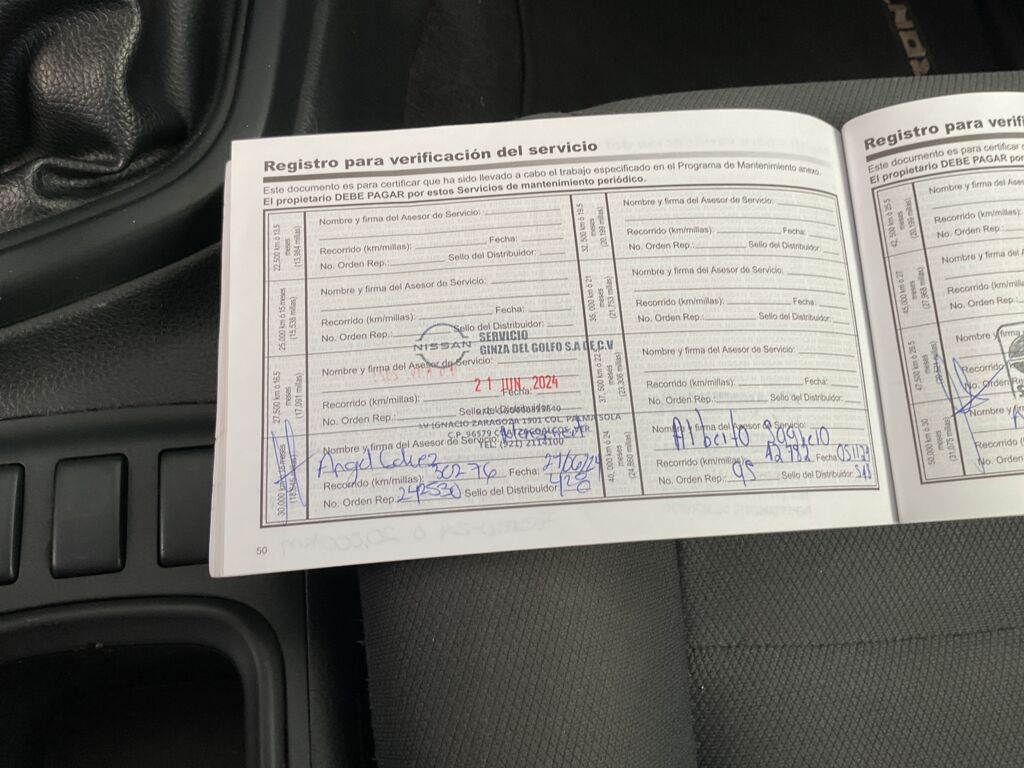 Registro para verificación del servicio
Este documento es para certificar que ha sido llevado a cabo el trabajo especificado en el Programa de Mantenimiento anexo.
El propietario DEBE PAGAR por estos Servicios de mantenimiento periódico.
22,500 km ó 13.5
meses
(13,984 millas)
Nombre y firma del Asesor de Servicio:
Recorrido (km/millas): Fecha:
No. Orden Rep.: Sello del Distribuidor:
25,000 km ó 15 meses
(15,538 millas)
Nombre y firma del Asesor de Servicio:
Recorrido (km/millas): Fecha:
No. Orden Rep.: Sello del Distribuidor:
NISSAN
SERVICIO
GINZA DEL GOLFO S.A DE C.V
27,500 km ó 16.5
meses
(17,091 millas)
Nombre y firma del Asesor de Servicio:
21 JUN. 2024
Recorrido (km/millas): Fecha:
No. Orden Rep.: Sello del Distribuidor:
AV IGNACIO ZARAGOZA 1901 COL. PALMA SOLA
C.P. 96579 COATZACOALCOS, VER.
30,000 km
Nombre y firma del Asesor de Servicio:
Angel
Recorrido (km/millas): 30276 Fecha:
No. Orden Rep.: 242530 Sello del Distribuidor:
32,500 km ó 19.5
meses
(20,199 millas)
Nombre y firma del Asesor de Servicio:
Recorrido (km/millas): Fecha:
No. Orden Rep.: Sello del Distribuidor:
35,000 km ó 21
meses
(21,753 millas)
Nombre y firma del Asesor de Servicio:
Recorrido (km/millas): Fecha:
No. Orden Rep.: Sello del Distribuidor:
37,500 km ó 22.5
meses
(23,306 millas)
Nombre y firma del Asesor de Servicio:
Recorrido (km/millas): Fecha:
No. Orden Rep.: Sello del Distribuidor:
40,000 km ó 24
meses
(24,860 millas)
Nombre y firma del Asesor de Servicio:
Alberto
Recorrido (km/millas): Fecha
No. Orden Rep.: Sello del Distribuidor:
50
Registro para verifi
Este documento es para certificar
El propietario DEBE PAGAR por
42,500 km ó 25.5
meses
Nombre y firma del Ases
Recorrido (km/millas)
No. Orden Rep.:
45,000 km ó 27
meses
Nombre y firma del A
Recorrido (km/m
No. Orden Rep.
47,500 km ó 28.5
Nombre y firma
Recorrido
No. Orden Re
50,000 km ó 30
meses
(31,075 millas)
Nombre y fir
Recorrido (
No. Orden